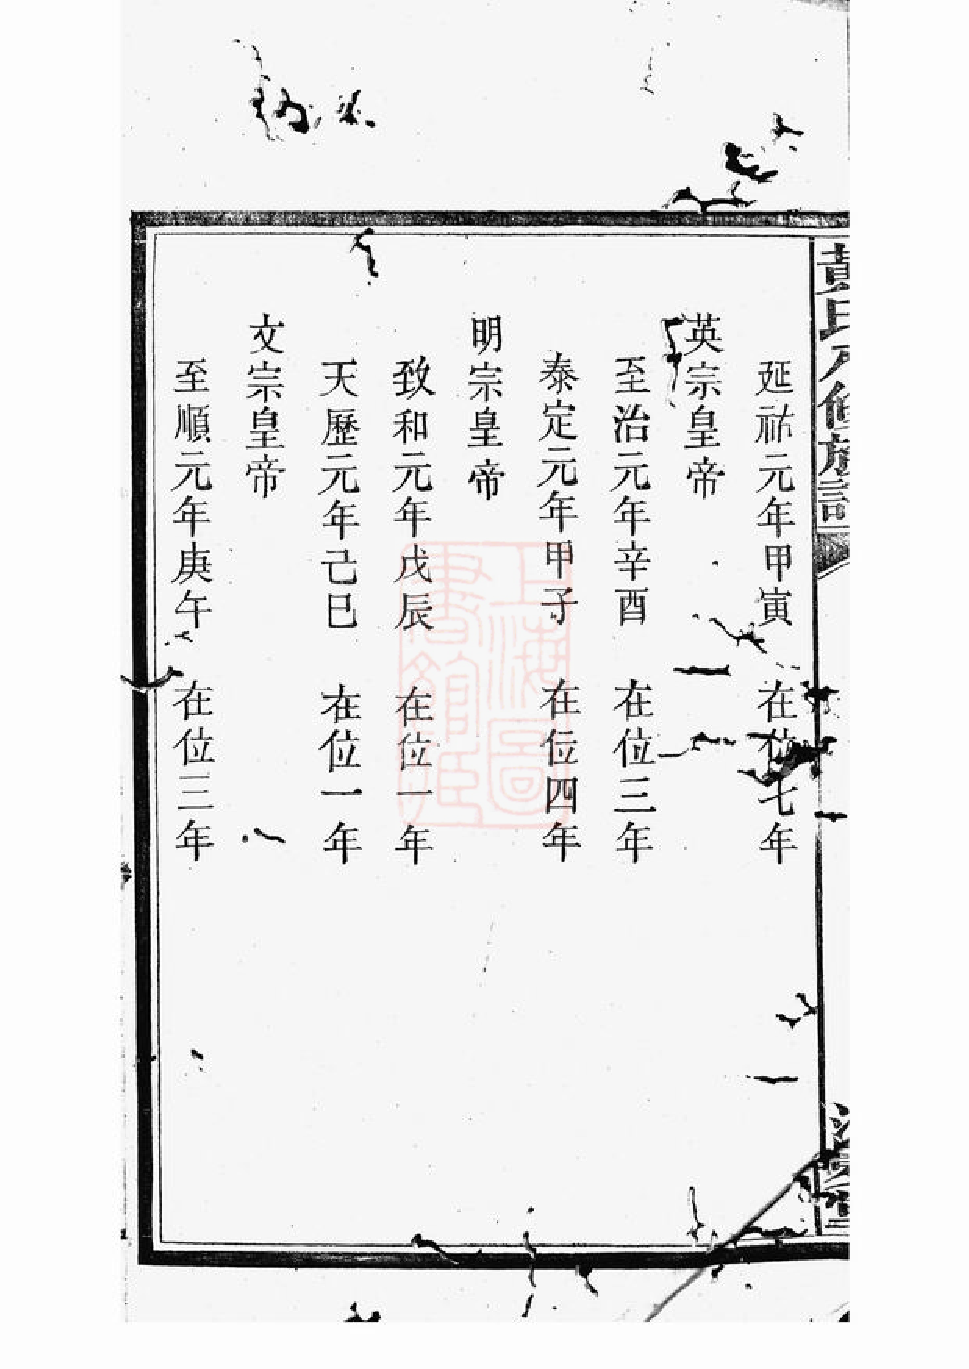 延祐元年甲寅 在位七年
英宗皇帝
至治元年辛酉 在位三年
泰定元年甲子 在位四年
明宗皇帝
致和元年戊辰 在位一年
天歷元年己巳 在位一年
文宗皇帝
至順元年庚午 在位三年
上海圖書館藏